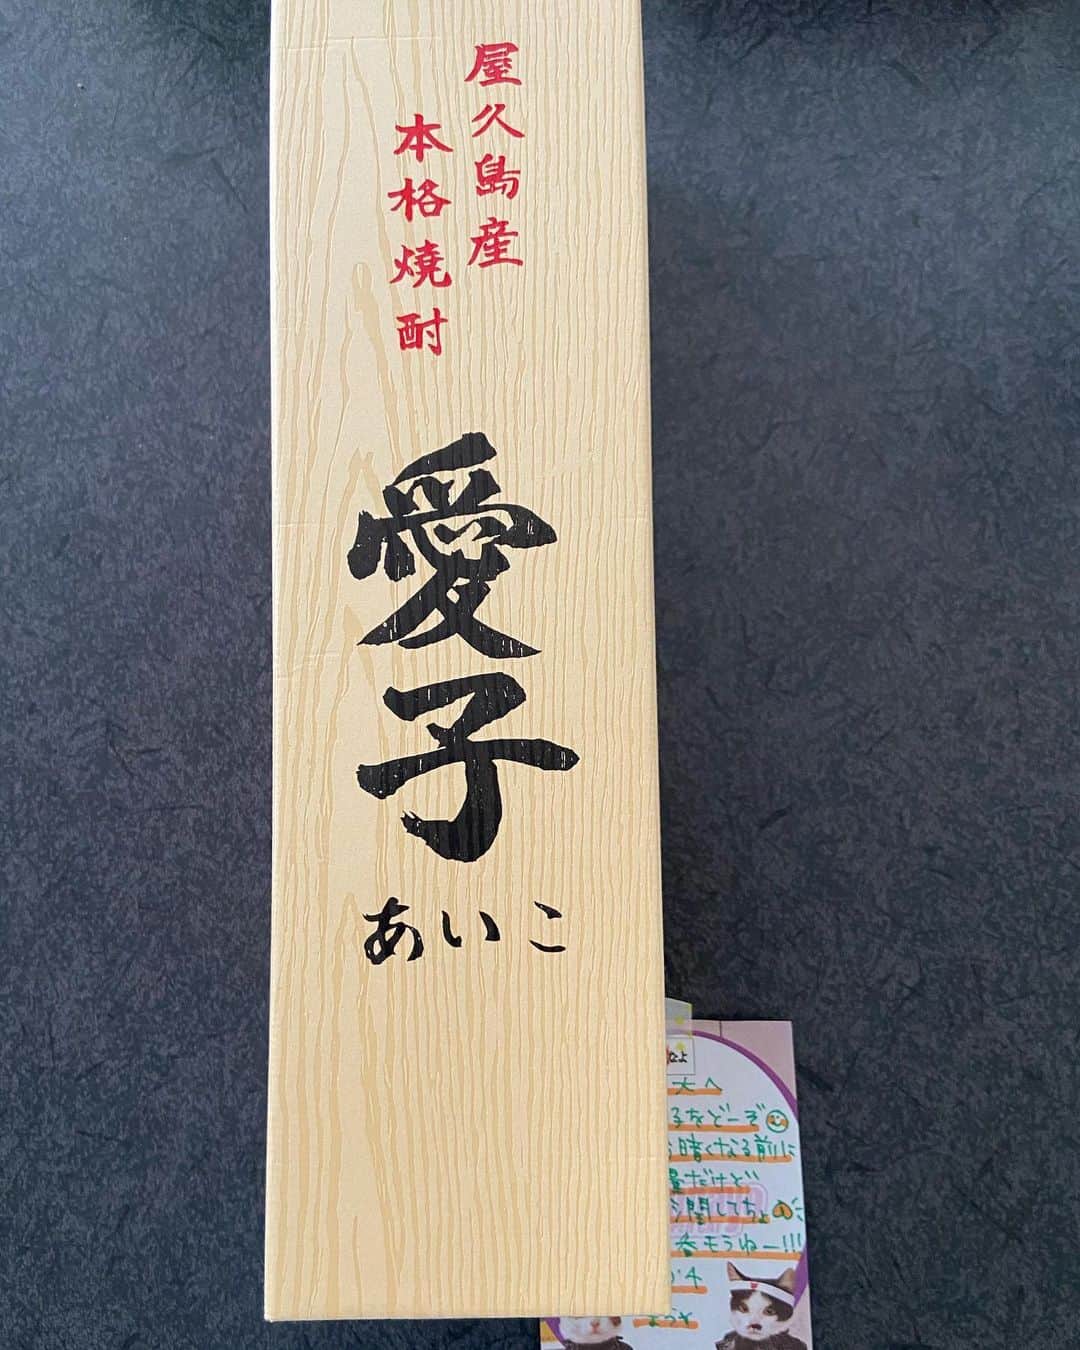 屋久島産
本格焼酎
愛子
あいこ
なよ
大へ
子をどーぞ
暗くなる前に
量だけど
開してちょ
呑もうねー!!!